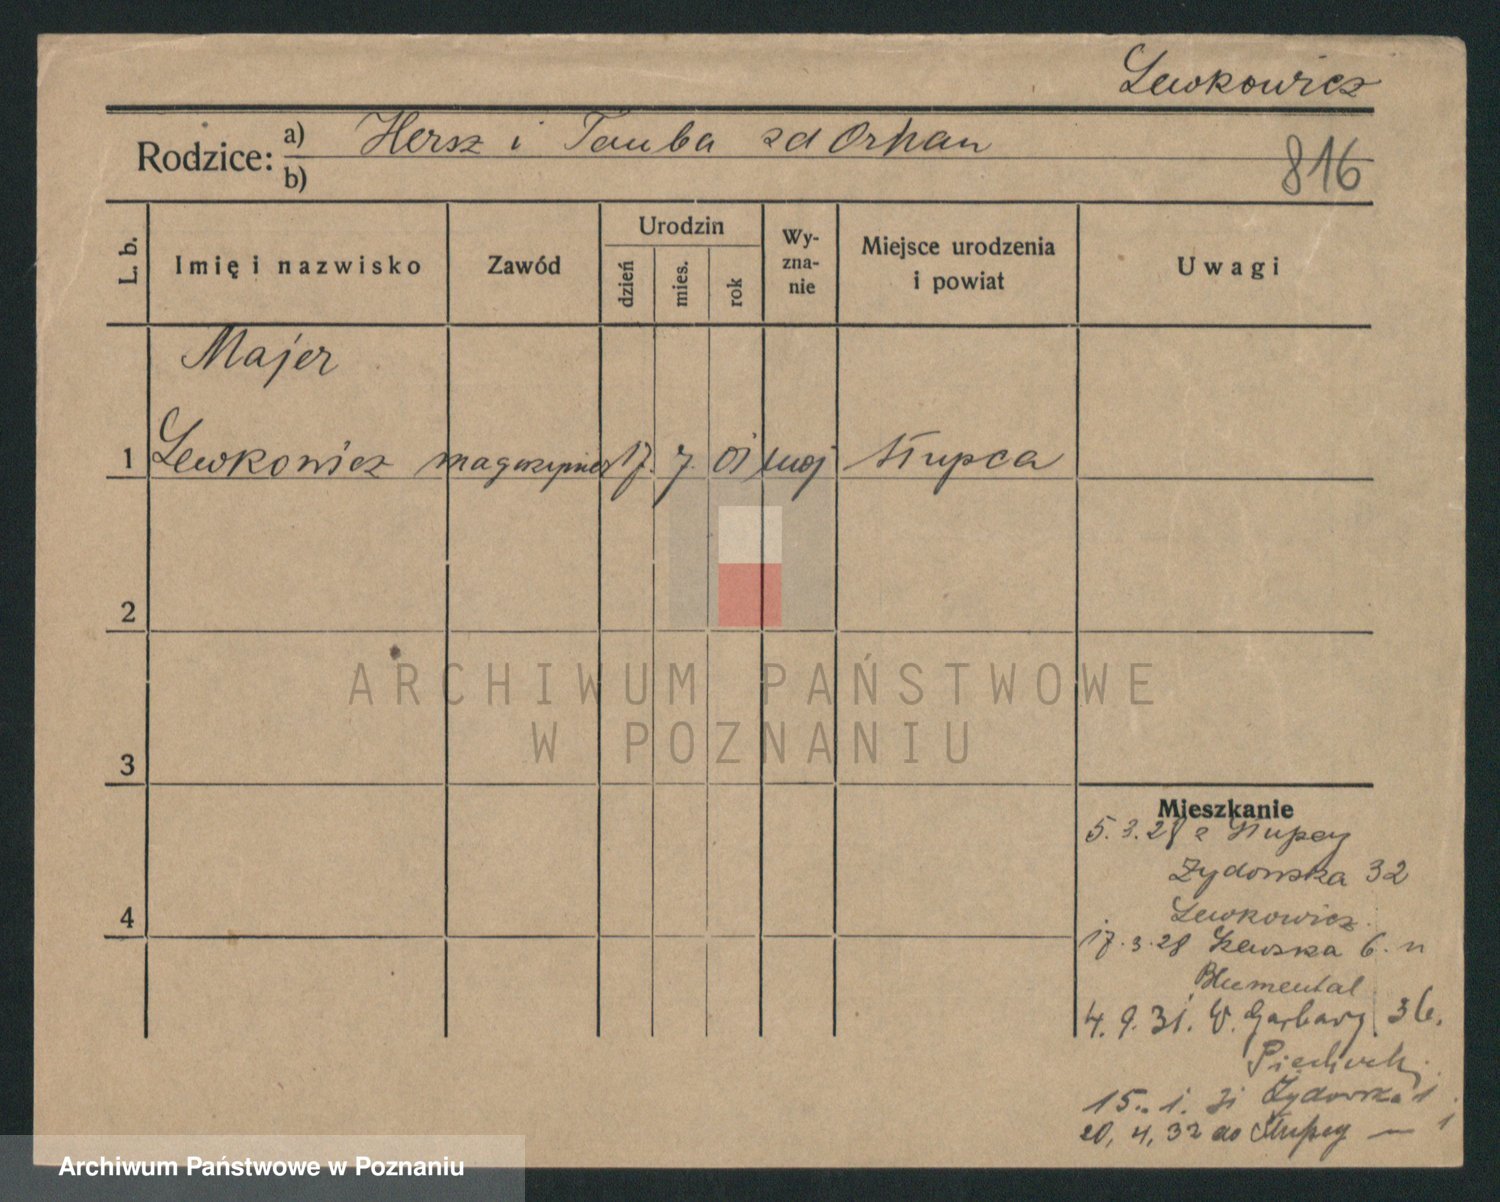 Lewkowicz
Rodzice: a) Hersz i Tauba zd Orhan
b)
816
L. b.
Imię i nazwisko
Zawód
Urodzin
dzień
mies.
rok
Wy-
zna-
nie
Miejsce urodzenia
i powiat
Uwagi
Majer
1 Lewkowicz magazynier 17. 7. 01 moj Słupca
2
3
4
ARCHIWUM PAŃSTWOWE
W POZNANIU
Mieszkanie
5.3.28 z Słupcy
Żydowska 32
Lewkowicz
17.3.28 Szewska 6.
Blumental
4.9.31. W. Garbary 36.
15. 1. Żydowska 1
20,4,32 do Słupcy — 1
Archiwum Państwowe w Poznaniu